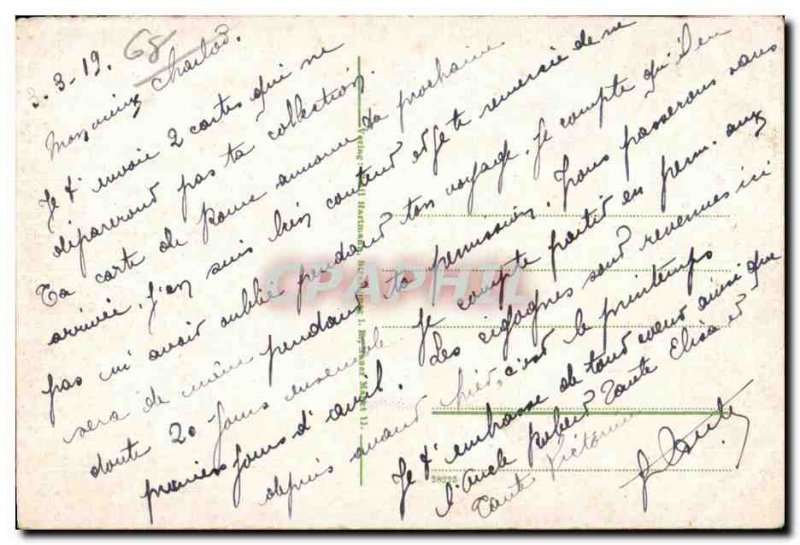 3-3-19. 68
Mon vieux Charlot.
Je t'envoie 2 cartes qui ne
dépareront pas ta collection.
Ta carte de Rome annonce ta prochaine
arrivée. J'en suis bien content et je te remercie de ne
pas m'avoir oublié pendant ton voyage. Je compte qu'il en
sera de même pendant ta permission. Nous passerons sans
doute 20 jours ensemble. Je compte partir en perm. aux
premiers jours d'avril. Les cigognes sont revenues ici
depuis avant hier, c'est le printemps
Je t'embrasse de tout coeur ainsi que
l'oncle Robert Tante Elisa et
Tante Victorine
Verlag: Hartmann,
38225
CPAPHIL